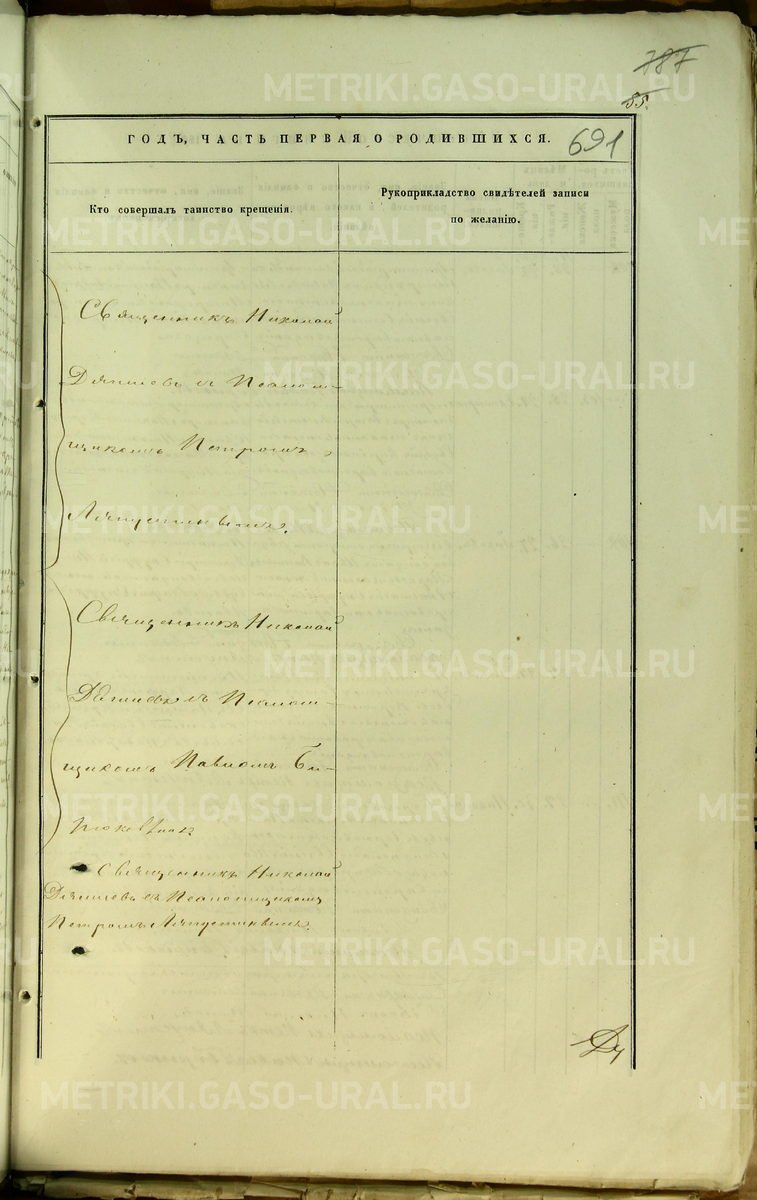 787
55.
ГОДЪ, ЧАСТЬ ПЕРВАЯ О РОДИВШИХСЯ.
691
Кто совершалъ таинство крещенія.
Рукоприкладство свидѣтелей записи
по желанію.
Священникъ Николай
съ Псалом-
щикомъ Петромъ
Ляпустинымъ.
Священникъ Николай
съ Псалом-
щикомъ Павломъ Би-
рюковымъ
Священникъ Николай
съ Псаломщикомъ
Петромъ Ляпустинымъ.
METRIKI.GASO-URAL.RU